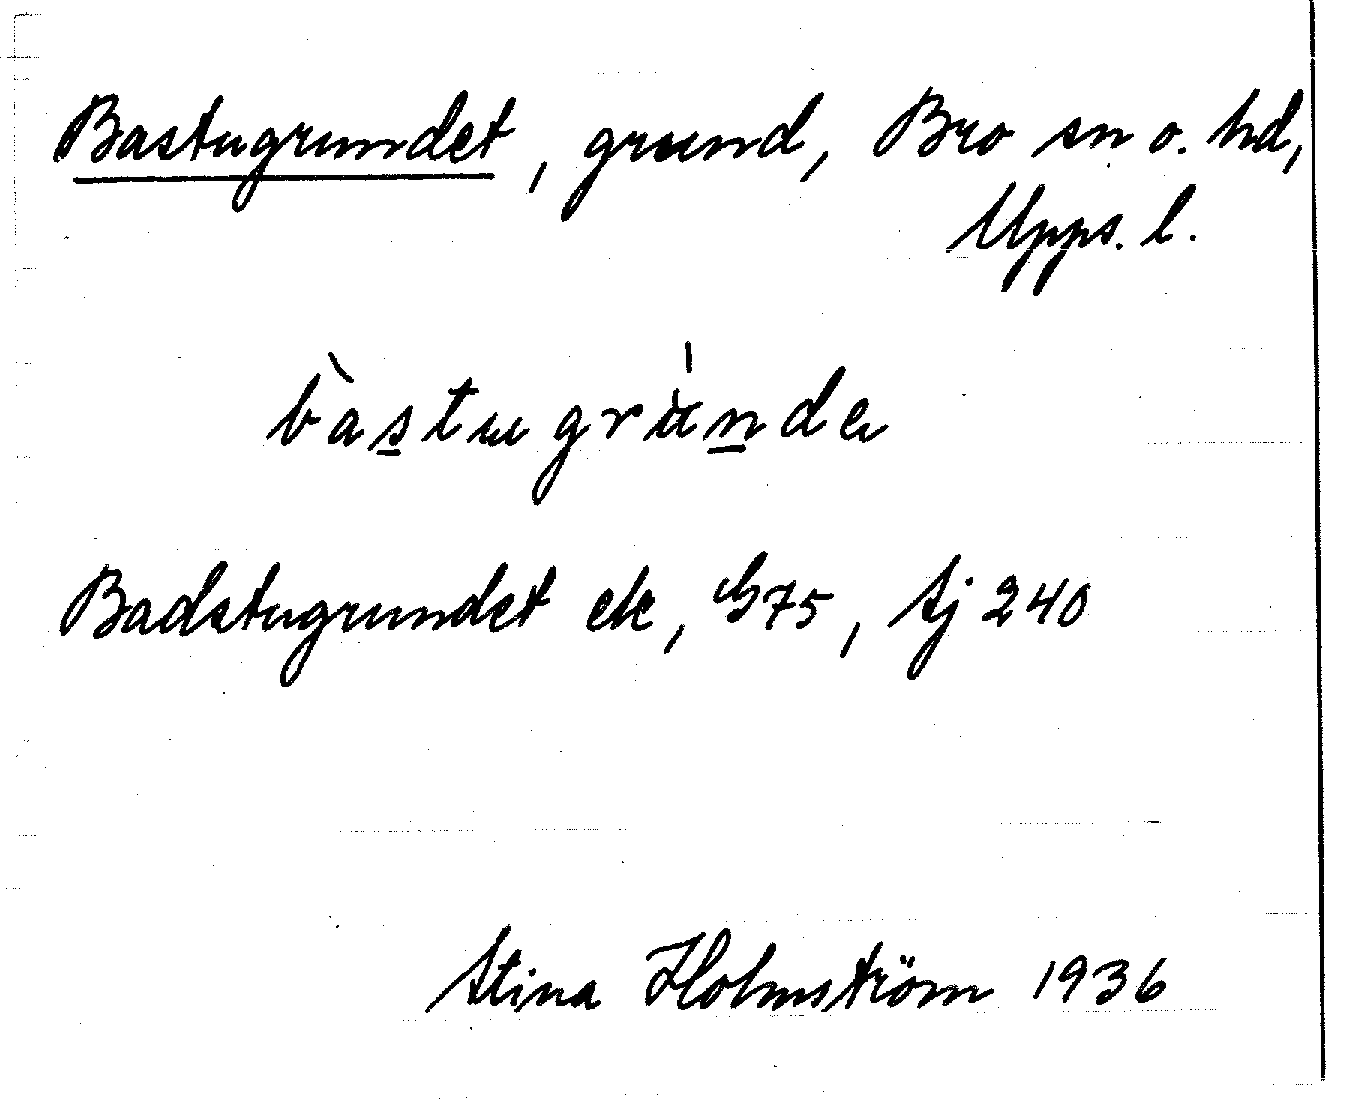 Bastugrundet, grund, Bro sn o. hd,
Upps. l.
bastugrunde
Badstugrundet ek, G75, Sj 240
Stina Holmström 1936